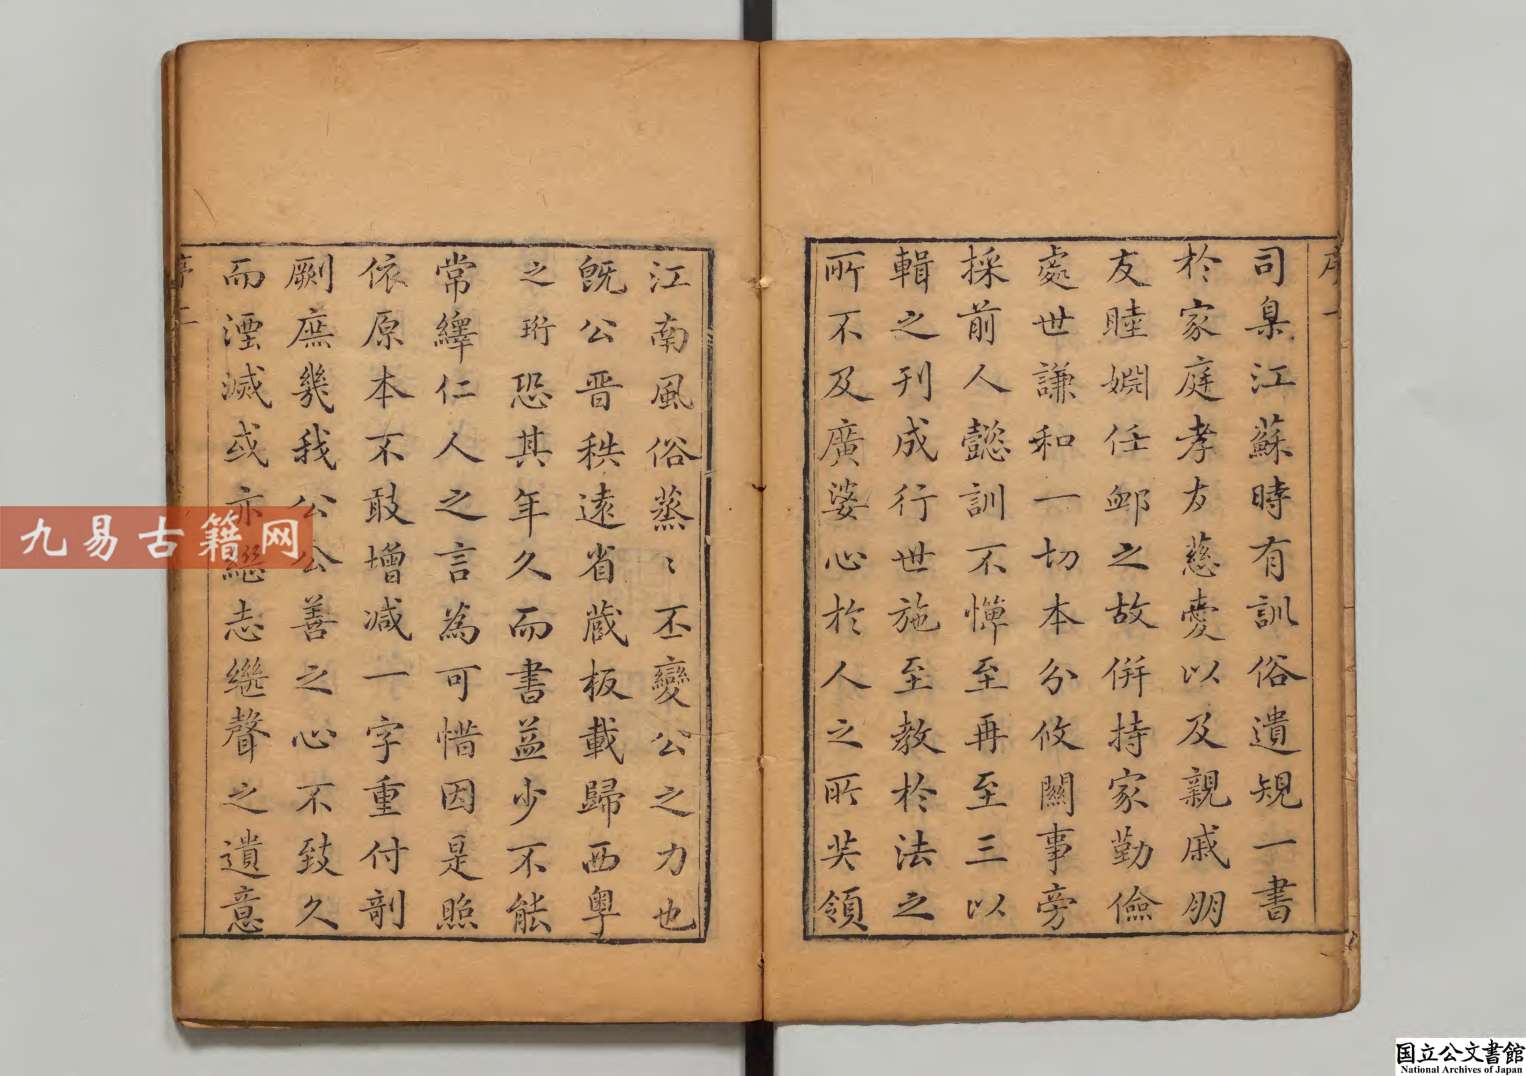 序一
司臬江蘇時有訓俗遺規一書
於家庭孝友慈愛以及親戚朋
友睦婣任䘏之故併持家勤儉
處世謙和一切本分攸關事旁
採前人懿訓不憚至再至三以
輯之刊成行世施至教於法之
所不及廣婆心於人之所共領
江南風俗蒸〻丕變公之力也
既公晋秩遠省蔵板載歸西粤
之珩恐其年久而書益少不能
常繹仁人之言為可惜因是照
依原本不敢增减一字重付剞
劂庶幾我公公善之心不致久
而湮滅或亦繼志繼聲之遺意
序二
九易古籍网
国立公文書館
National Archives of Japan